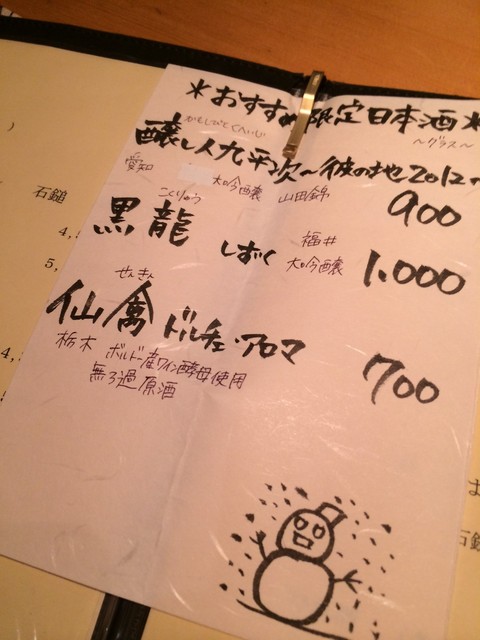 ＊おすすめ限定日本酒＊
～グラス～
かもしびとくへいじ
醸し人九平次～彼の地2012～
愛知
大吟醸 山田錦
900
こくりゅう
黒龍 しずく
福井
大吟醸
1.000
せんきん
仙禽 ドルチェ・アロマ
栃木 ボルドー産ワイン酵母使用
無ろ過原酒
700
石鎚
4,
5,
4,